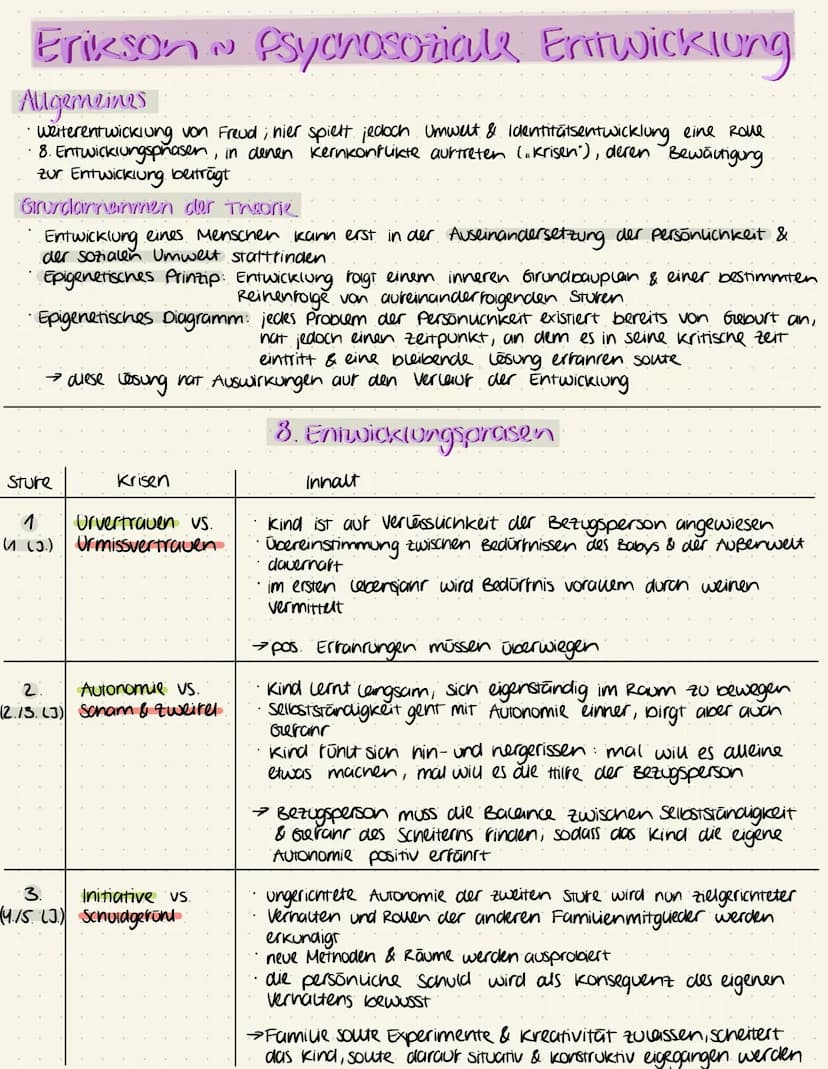 Erikson ~ Psychosoziale Entwicklung
Allgemeines
· Weiterentwicklung von Freud ; hier spielt jedoch Umwelt & Identitätsentwicklung eine Rolle
· 8. Entwicklungsphasen, in denen Kernkonflikte auftreten („Krisen"), deren Bewältigung
zur Entwicklung beiträgt
Grundannahmen der Theorie
· Entwicklung eines Menschen kann erst in der Auseinandersetzung der Persönlichkeit &
der sozialen Umwelt stattfinden
· Epigenetisches Prinzip: Entwicklung folgt einem inneren Grundbauplan & einer bestimmten
Reihenfolge von aufeinanderfolgenden Stufen
· Epigenetisches Diagramm: jedes Problem der Persönlichkeit existiert bereits von Geburt an,
hat jedoch einen Zeitpunkt, an dem es in seine kritische Zeit
eintritt & eine bleibende Lösung erfahren sollte
→ diese Lösung hat Auswirkungen auf den Verlauf der Entwicklung
8. Entwicklungsphasen
Stufe Krisen Inhalt
1 Urvertrauen vs. · Kind ist auf Verlässlichkeit der Bezugsperson angewiesen
(1 LJ.) Urmissvertrauen · Übereinstimmung zwischen Bedürfnissen des Babys & der Außenwelt
· dauerhaft
· im ersten Lebensjahr wird Bedürfnis vorallem durch weinen
vermittelt
→ pos. Erfahrungen müssen überwiegen
2. Autonomie vs. · Kind lernt langsam, sich eigenständig im Raum zu bewegen
(2./3. LJ) Scham & Zweifel · Selbstständigkeit geht mit Autonomie einher, birgt aber auch
Gefahr
· Kind fühlt sich hin- und hergerissen : mal will es alleine
etwas machen, mal will es die Hilfe der Bezugsperson
→ Bezugsperson muss die Balance zwischen Selbstständigkeit
& Gefahr des Scheiterns finden, sodass das Kind die eigene
Autonomie positiv erfährt
3. Initiative vs. · ungerichtete Autonomie der zweiten Stufe wird nun zielgerichteter
(4./5. LJ.) Schuldgefühl · Verhalten und Rollen der anderen Familienmitglieder werden
erkundigt
· neue Methoden & Räume werden ausprobiert
· die persönliche Schuld wird als Konsequenz des eigenen
Verhaltens bewusst
→ Familie sollte Experimente & Kreativität zulassen, scheitert
das Kind, sollte darauf situativ & konstruktiv eigegangen werden